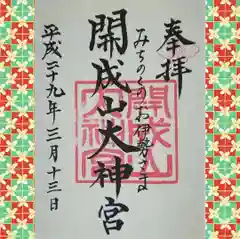 奉拝
みちのくのお伊勢さま
開成山大神宮
平成二十九年三月十三日